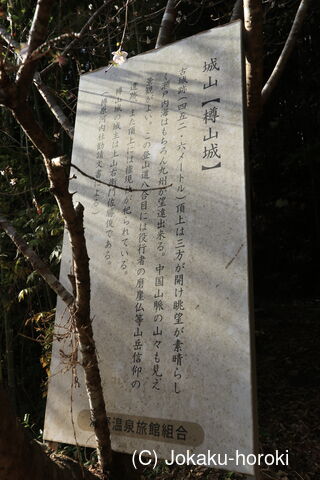 城山【樽山城】
古城跡(四五二・六メートル)頂上は三方が開け眺望が素晴らし
く瀬戸内海はもちろん九州が望遠出来る。中国山脈の山々も見え
景観がよい。この登山道八合目には役行者の磨崖仏等山岳信仰の
遺跡がまた頂上には権現様が祀られている。
樽山城の城主は土山右衛門佐俊である。
温泉旅館組合
(C) Jokaku-horoki